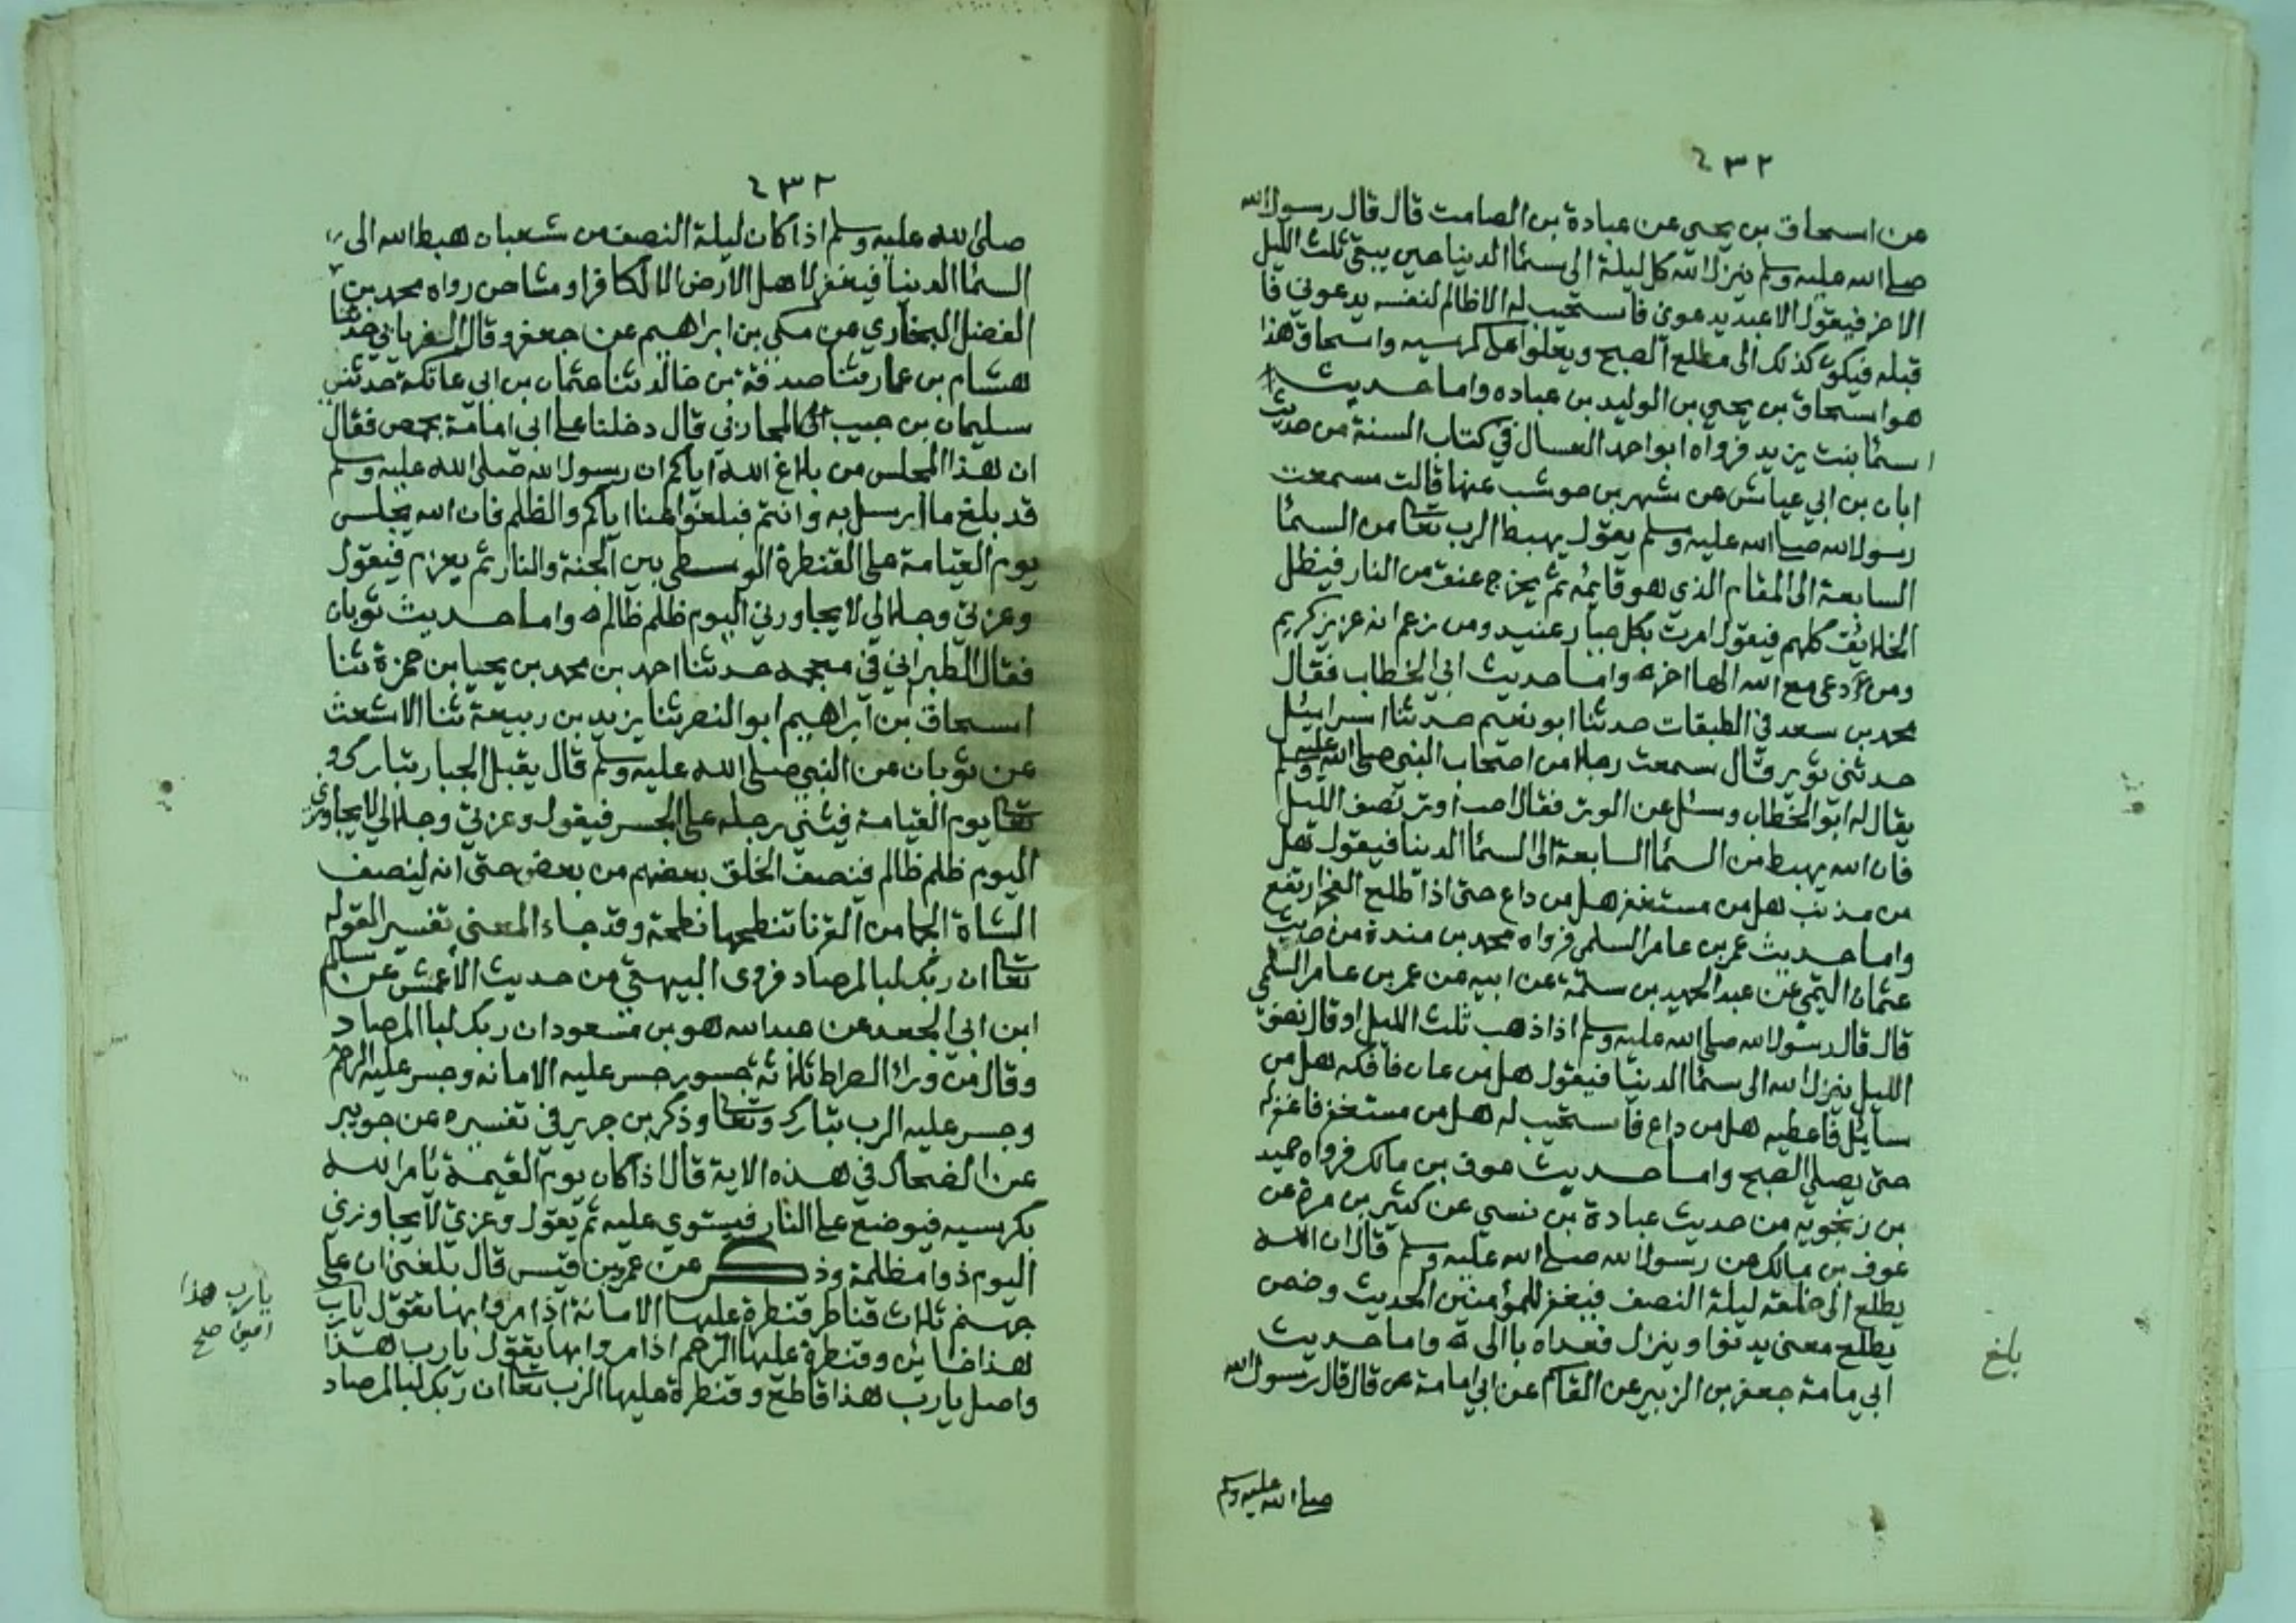 ٤٣٢
عن اسحاق بن يحيى عن عبادة بن الصامت قال قال رسول الله
صلى الله عليه وسلم ينزل الله كل ليلة الى سما الدنيا حين يبقى ثلث الليل
الاخر فيقول الا عبد يدعوني فاستجيب له الا ظالم لنفسه يدعوني فا
قبله فيكون كذلك الى مطلع الصبح ويعلوا على كرسيه واسحاق هذا
هو اسحاق بن يحيى بن الوليد بن عباده واما حديث
اسما بنت يزيد فرواه ابو احمد العسال في كتاب السنة من حديث
ابان بن ابي عياش عن شهر بن حوشب عنها قالت سمعت
رسول الله صلى الله عليه وسلم يقول يهبط الرب تعا من السما
السابعة الى المقام الذي هو قايمه ثم يخرج عنق من النار فيظل
الخلايق كلهم فيقول امرت بكل جبار عنيد ومن زعم انه عزيز كريم
ومن دعى مع الله الها اخر ه واما حديث ابي الخطاب فقال
محمد بن سعد في الطبقات حدثنا ابو نعيم حدثنا اسرائيل
حدثني ثوير قال سمعت رجلا من اصحاب النبي صلى الله عليه وسلم
يقال له ابو الخطاب وسئل عن الوتر فقال احب اوتر نصف الليل
فان الله يهبط من السما السابعة الى السما الدنيا فيقول هل
من مذنب هل من مستغفر هل من داع حتى اذا طلع الفجر ارتفع
واما حديث عمر بن عامر السلمي فرواه محمد بن مندة من حديث
عثمان التيمي عن عبد الحميد بن سلمة عن ابيه عن عمر بن عامر السلمي
قال قال رسول الله صلى الله عليه وسلم اذا ذهب ثلث الليل او قال نصف
الليل ينزل الله الى سما الدنيا فيقول هل من عان فافكه هل من
سايل فاعطيه هل من داع فاستجيب له هل من مستغفر فاغفر له
حتى يصلي الصبح واما حديث عوف بن مالك فرواه حميد
بن زنجويه من حديث عبادة بن نسي عن كثير بن مرة عن
عوف بن مالك عن رسول الله صلى الله عليه وسلم قال ان الله
يطلع الى خلقه ليلة النصف فيغفر للمؤمنين الحديث وضمن
يطلع معنى يدنوا وينزل فعداه بالى ه واما حديث
ابي مامة جعفر بن الزبير عن القاسم عن ابي امامة قال قال رسول الله
صلى الله عليه وسلم
بلغ
٤٣٢
صلى الله عليه وسلم اذا كان ليلة النصف من شعبان هبط الله الى
السما الدنيا فيغفر لاهل الارض الا لكافر او مشاحن رواه محمد بن
الفضل البخاري عن مكي بن ابراهيم عن جعفر وقال الفريابي حدثنا
هشام بن عمار ثنا صدقة بن خالد ثنا عثمان بن ابي عاتكة حدثني
سليمان بن حبيب المحاربي قال دخلنا على ابي امامة بحمص فقال
ان هذا المجلس من بلاغ الله اياكم ان رسول الله صلى الله عليه وسلم
قد بلغ ما ارسل به وانتم فبلغوا هنا اياكم والظلم فان الله يجلس
يوم القيامة على القنطرة الوسطى بين الجنة والنار ثم يعزم فيقول
وعزتي وجلالي لا يجاورني اليوم ظلم ظالم ه واما حديث ثوبان
فقال الطبراني في معجمه حدثنا احمد بن محمد بن يحيا بن حمزة ثنا
اسحاق بن ابراهيم ابو النصر ثنا يزيد بن ربيعة ثنا الاشعث
عن ثوبان عن النبي صلى الله عليه وسلم قال يقبل الجبار تبارك و
تعا يوم القيامة فيثني رجله على الجسر فيقول وعزتي وجلالي لا يجاوزني
اليوم ظلم ظالم فنصف الخلق بعضهم من بعض حتى انه لينصف
الشاة الجما من القرنا تنطحها نطحة وقد جاء المعنى تفسير لقوله
تعا ان ربك لبالمرصاد فروى البيهقي من حديث الأعمش عن سالم
ابن ابي الجعد عن عبد الله هو بن مسعود ان ربك لبالمرصاد
وقال من وراء الصراط ثلاثة جسور جسر عليه الامانه وجسر عليه الرحم
وجسر عليه الرب تبارك وتعا وذكر بن جرير في تفسيره عن جويبر
عن الضحاك في هذه الاية قال اذا كان يوم القيمة يامر الله
بكرسيه فيوضع على النار فيستوي عليه ثم يقول وعزتي لا يجاوزني
اليوم ذوا مظلمة وذكر عن عمر بن قيس قال بلغني ان على
جهنم ثلاث قناطر قنطرة عليها الامانة اذا مروا بها تقول يارب
هذا خاين وقنطرة عليها الرحم اذا مروا بها يقول يارب هذا
واصل يارب هذا قاطع وقنطرة عليها الرب تعا ان ربك لبالمرصاد
يارب هذا
امين صح